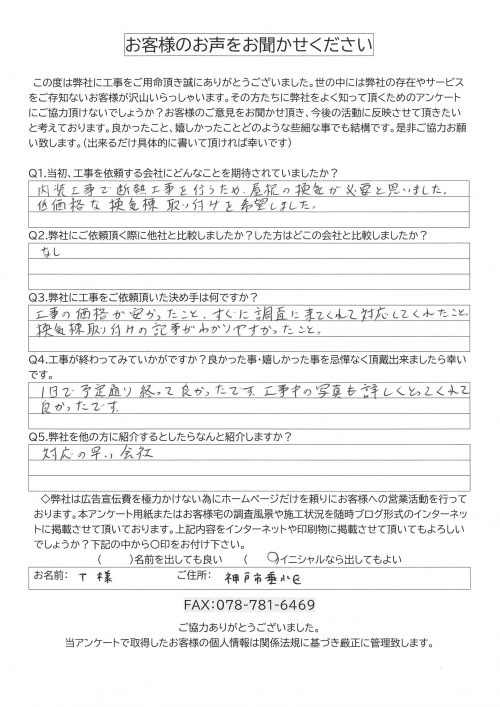 お客様のお声をお聞かせください
この度は弊社に工事をご用命頂き誠にありがとうございました。世の中には弊社の存在やサービス
をご存知ないお客様が沢山いらっしゃいます。その方たちに弊社をよく知って頂くためのアンケート
にご協力頂けないでしょうか?お客様のご意見をお聞かせ頂き、今後の活動に反映させて頂きたい
と考えております。良かったこと、嬉しかったことどのような些細な事でも結構です。是非ご協力お願
い致します。(出来るだけ具体的に書いて頂ければ幸いです)
Q1.当初、工事を依頼する会社にどんなことを期待されていましたか?
内装工事で断熱工事を行うため、屋根の換気が必要と思いました。
低価格な換気棟取り付けを希望しました。
Q2.弊社にご依頼頂く際に他社と比較しましたか?した方はどこの会社と比較しましたか?
なし
Q3.弊社に工事をご依頼頂いた決め手は何ですか?
工事の価格が安かったこと、すぐに調査に来てくれて対応してくれたこと。
換気棟取り付けの記事がわかりやすかったこと。
Q4.工事が終わってみていかがですか?良かった事・嬉しかった事を忌憚なく頂戴出来ましたら幸い
です。
1日で予定通り終って良かったです。工事中の写真も詳しくとってくれて
良かったです。
Q5.弊社を他の方に紹介するとしたらなんと紹介しますか?
対応の早い会社
◇弊社は広告宣伝費を極力かけない為にホームページだけを頼りにお客様への営業活動を行って
おります。本アンケート用紙またはお客様宅の調査風景や施工状況を随時ブログ形式のインターネッ
トに掲載させて頂いております。上記内容をインターネットや印刷物に掲載させて頂いてもよろしい
でしょうか?下記の中から〇印をお付け下さい。
( )名前を出しても良い (○)イニシャルなら出してもよい
お名前: T 様 ご住所: 神戸市垂水区
FAX:078-781-6469
ご協力ありがとうございました。
当アンケートで取得したお客様の個人情報は関係法規に基づき厳正に管理致します。